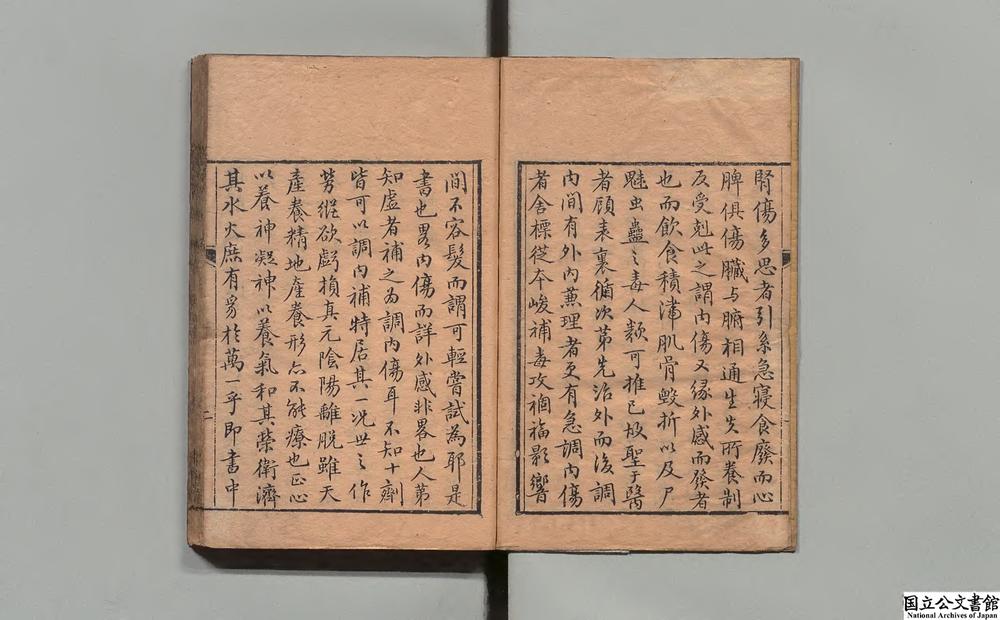 腎傷多思者引系急寢食廢而心
脾俱傷臟与腑相通生失所養制
反受剋此之謂内傷又縁外感而發者
也而飲食積滯肌骨毀折以及尸
魅虫蠱之毒人類可推已故聖于醫
者顧表裏循次苐先治外而後調
内間有外内蒸理者更有急調内傷
者舍標從本峻補毒攻禍福影響
間不容髮而謂可輕嘗試為耶是
書也畧内傷而詳外感非畧也人苐
知虚者補之為調内傷耳不知十劑
皆可以調内補特居其一况世之作
劳縱欲虧損真元陰陽離脱雖天
産養精地産養形亦不能療也正心
以養神凝神以養氣和其榮衛濟
其水火庶有㡬扵萬一乎即書中
二
国立公文書館
National Archives of Japan